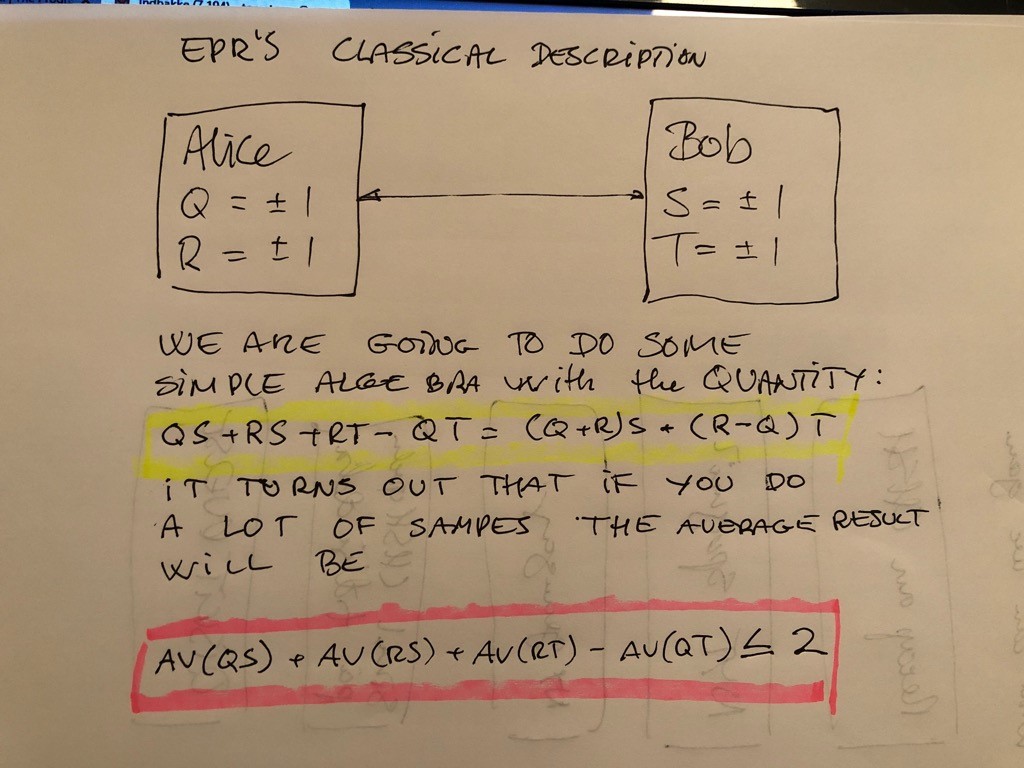 EPR'S CLASSICAL DESCRIPTION
Alice
Q = ± 1
R = ± 1
Bob
S = ± 1
T = ± 1
WE ARE GOING TO DO SOME
SIMPLE ALGEBRA with the QUANTITY:
QS + RS + RT - QT = (Q+R)S + (R-Q)T
IT TURNS OUT THAT IF YOU DO
A LOT OF SAMPES THE AVERAGE RESULT
WILL BE
AV(QS) + AV(RS) + AV(RT) - AV(QT) ≤ 2